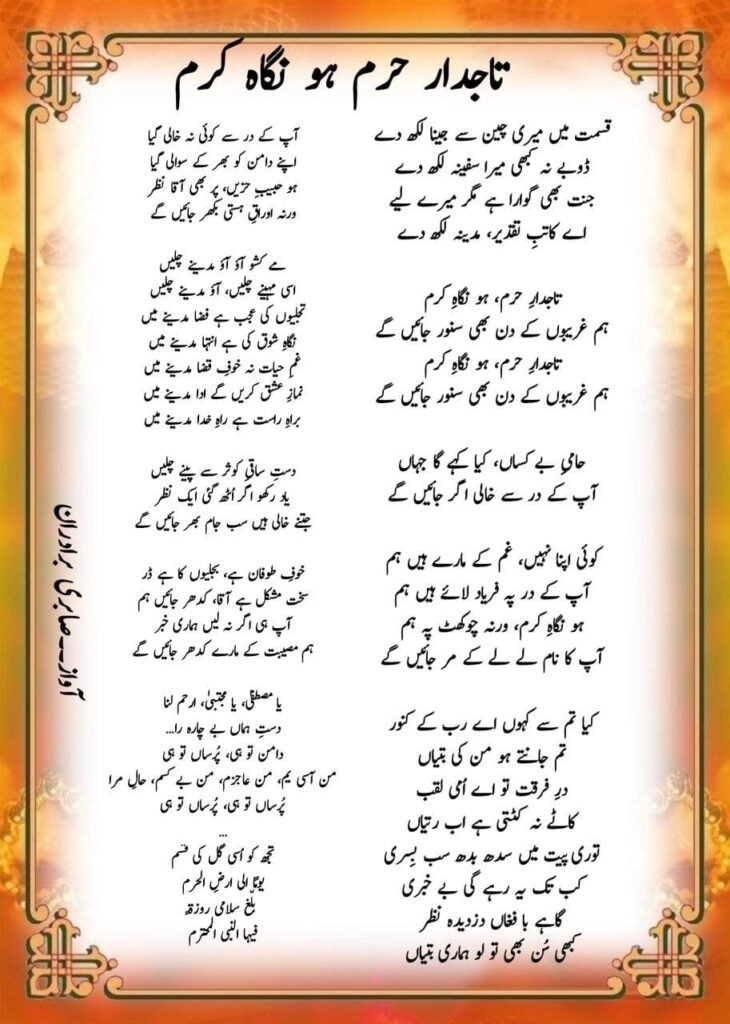 تاجدار حرم ہو نگاہ کرم
قسمت میں میری چین سے جینا لکھ دے
ڈوبے نہ کبھی میرا سفینہ لکھ دے
جنت بھی گوارا ہے مگر میرے لیے
اے کاتبِ تقدیر، مدینہ لکھ دے
تاجدارِ حرم، ہو نگاہِ کرم
ہم غریبوں کے دن بھی سنور جائیں گے
تاجدارِ حرم، ہو نگاہِ کرم
ہم غریبوں کے دن بھی سنور جائیں گے
حامیِ بے کساں، کیا کہے گا جہاں
آپ کے در سے خالی اگر جائیں گے
کوئی اپنا نہیں، غم کے مارے ہیں ہم
آپ کے در پہ فریاد لائے ہیں ہم
ہو نگاہِ کرم، ورنہ چوکھٹ پہ ہم
آپ کا نام لے لے کے مر جائیں گے
کیا تم سے کہوں اے رب کے کنور
تم جانتے ہو من کی بتیاں
درِ فرقت تو اے اُمی لقب
کاٹے نہ کٹتی ہے اب رتیاں
توری پیت میں سدھ بدھ سب بِسری
کب تک یہ رہے گی بے خبری
گاہے بافغاں دزدیدہ نظر
کبھی سُن بھی تو لو ہماری بتیاں
آپ کے در سے کوئی نہ خالی گیا
اپنے دامن کو بھر کے سوالی گیا
ہو حبیبِ حزیں، پر بھی آقا نظر
ورنہ اوراقِ ہستی بکھر جائیں گے
مے کشو آؤ آؤ مدینے چلیں
اسی مہینے چلیں، آؤ مدینے چلیں
تجلیوں کی عجب ہے فضا مدینے میں
نگاہِ شوق کی ہے انتہا مدینے میں
غمِ حیات نہ خوفِ قضا مدینے میں
نمازِ عشق کریں گے ادا مدینے میں
براہِ راست ہے راہِ خدا مدینے میں
دستِ ساقیِ کوثر سے پینے چلیں
یاد رکھو اگر اُٹھ گئی ایک نظر
جتنے خالی ہیں سب جام بھر جائیں گے
خوفِ طوفان ہے، بجلیوں کا ہے ڈر
سخت مشکل ہے آقا، کدھر جائیں ہم
آپ ہی اگر نہ لیں ہماری خبر
ہم مصیبت کے مارے کدھر جائیں گے
یا مصطفیٰ، یا مجتبیٰ، ارحم لنا
دستِ ہماں بے چارہ را...
دامن تو ہی، پُرساں تو ہی
من آسی یم، من عاجزم، من بے کسم، حالِ مرا
پُرساں تو ہی، پُرساں تو ہی
...
تجھ کو اُسی گل کی قسم
الی ارضِ الحرم
بلغ سلامی روزۃ
فیہا النبی المحترم
آواز--صابری برادران